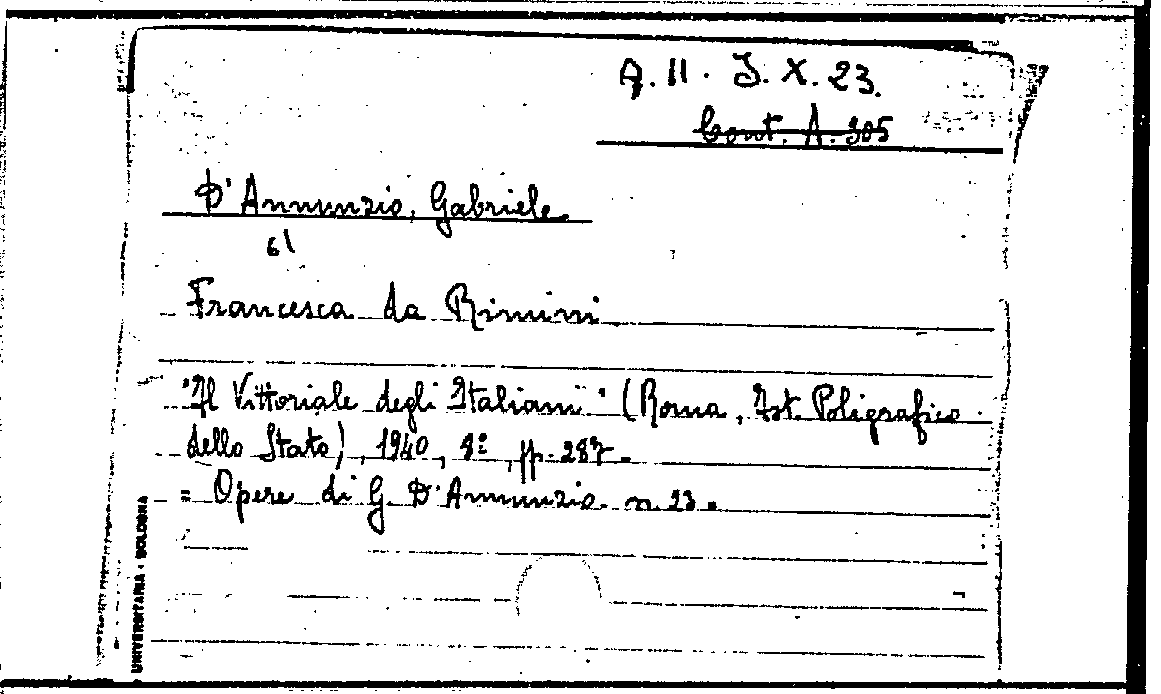 A. II. J. X. 23.
Cont. A. 305
D'Annunzio, Gabriele
61
Francesca da Rimini
"Il Vittoriale degli Italiani" (Roma, Ist. Poligrafico
dello Stato), 1940, 8º, pp. 287.
= Opere di G. D'Annunzio. n. 23.
UNIVERSITARIA - BOLOGNA